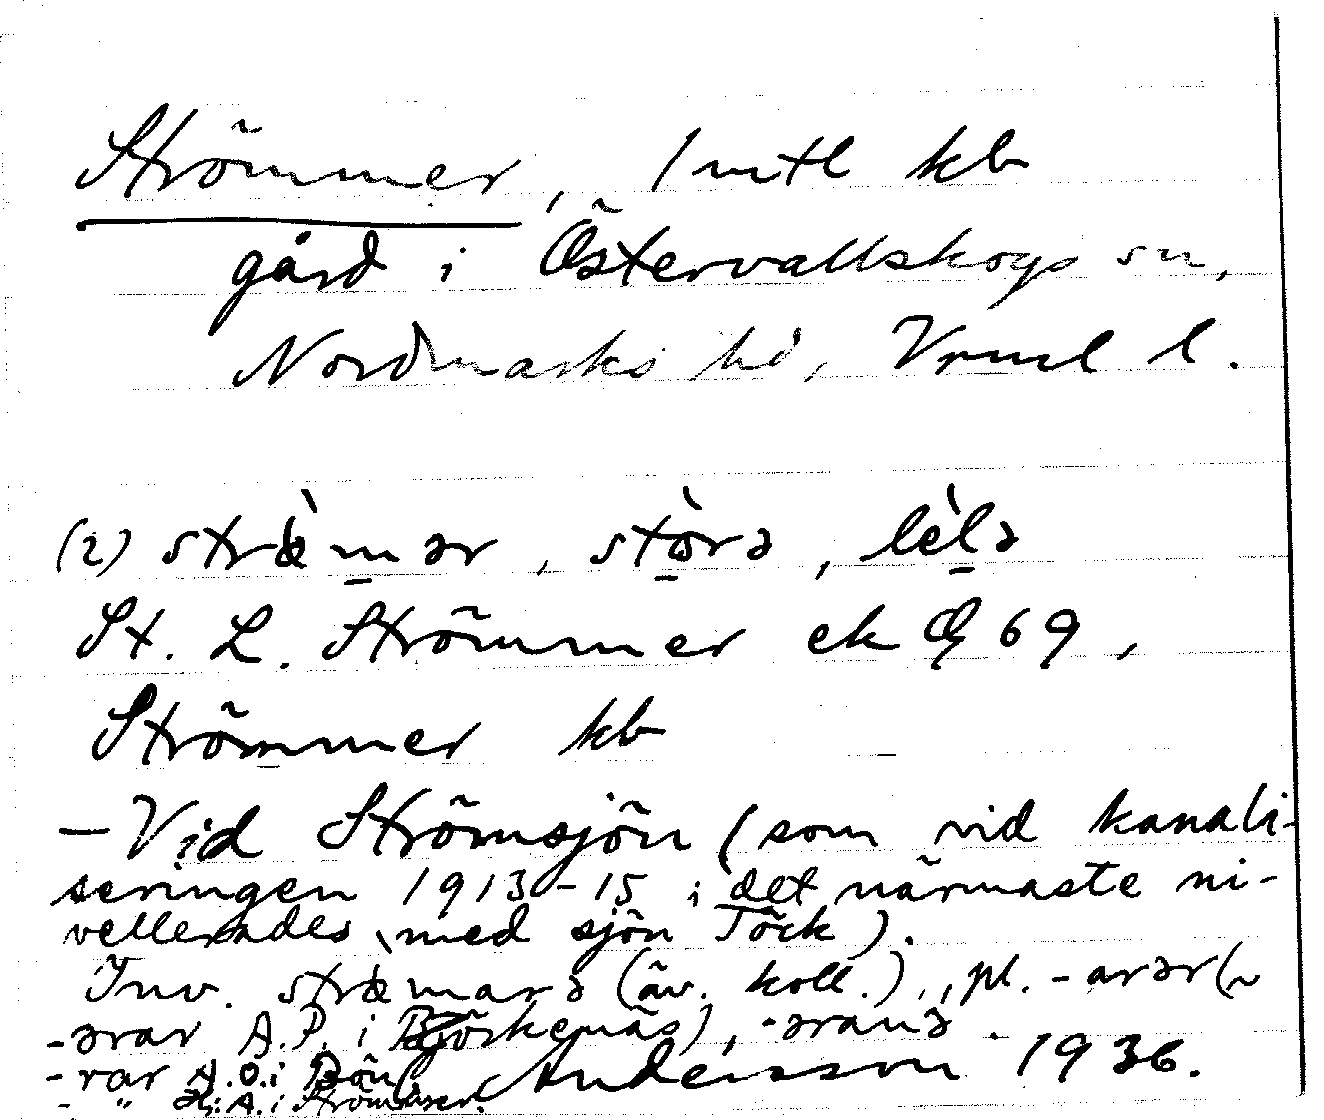 Strömmer, 1 mtl kb
gård i Östervallskogs sn,
Nordmarks hd, Vrml l.
(2) stræ̀mər, stòrə, lèlə
St. L. Strömmer ek 69,
Strömmer kb
– Vid Strömsjön (som vid kanali-
seringen 1913–15 i det närmaste ni-
vellerades med sjön Töck).
Inv. stræ̀marə (äv. koll.), pl. -arər (~
-ərar A.P. i Björkenäs), -əranə.
-rar A.O. i Bön) Andersson 1936.
- " A. i Strömmer.